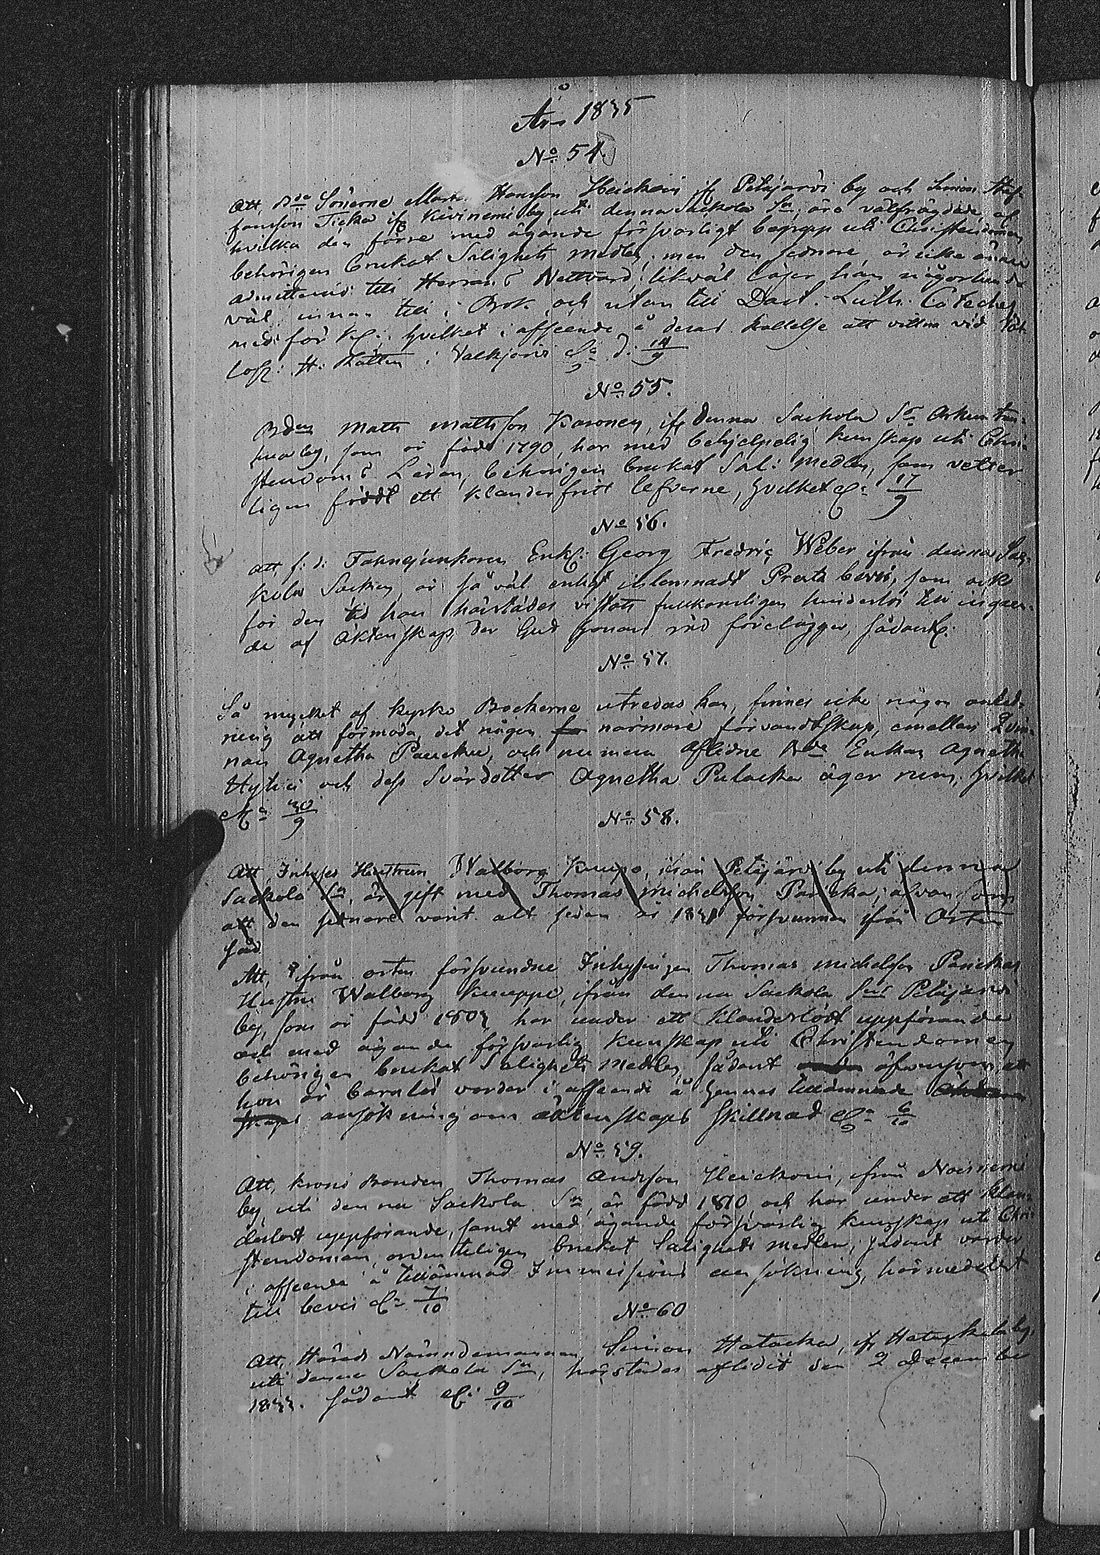 År 1835
No 54.
Att, Bde Sönerne Matts Hansson Heickoin if Petäjärvi by och Simon Staf-
fansson Ticka if Kiviniemi by uti denna Sackola Sn, äro välfrägdade, af
hvilka den förre med ägande försvarligt begrepp uti Christendomen
behörigen brukat Salighets medlen, men den sednare är icke ännu
admitterad till Herrans Nattvard, likväl läser han någorlunda
väl innan till i Bok och utan till Doct. Luth. Cateches
med förkl:, hvilket i afseende å deras kallelse att vittna vid
lofl: H: Rätten i Valkjärvi &c d: 14/9
No 55.
Bden Matts Mattsson Karonen, if denna Sackola Sn
by, som är född 1790, har med behjelpelig kunskap uti Chri-
stendoms Läran, behörigen brukat Sal: medlen, som vetter-
ligen fördt ett klanderfritt lefverne, hvilket &c 17/9
No 56.
Att f: d: Fahnejunkaren Enkl: Georg Fredric Weber ifrån denna Sac-
kola Socken, är så väl enligt inlemnadt Presta bevis, som ock
för den tid han härstädes vistats fullkomligen hinderlös till ingåen-
de af Äktenskap der Gud honom råd förelägger, sådant &c.
No 57.
Så mycket af kyrko Böckerne utredas kan, finnes icke någon anled-
ning att förmoda, det någon närmare förvandtskap, emellan Qvin-
nan Agnetha Paucku, och numera aflidne Bde Enkan Agnetha
Hytti och dess Svärdotter Agnetha Pulacka äger rum, hvilket
&c 30/9
No 58.
Att Inhyses Hustrun Walborg Kuuppo, ifrån Petäjärvi by uti denna
Sackola Sn, är gift med Thomas Michelsson Paucku, äfvensom
att den sednare varit alt sedan år försvunnen ifrån Orten
såd
Att, ifrån orten försvundne Inhysingen Thomas Michelsson Pauckus
Hustru Walborg Kuuppo, ifrån denna Sackola Sns Petäjärvi
by, som är född har under ett klanderlöst uppförande
och med ägande försvarlig kunskap uti Christendomen
behörigen brukat Salighets medlen, sådant äfvensom att
hon är barnlös varder i afseende å hennes tillämnade
ansökning om äktenskaps skillnad &c 6/10
No 59.
Att, krono Bonden Thomas Andersson Heickoin, ifrån Noisniemi
by uti denna Sackola Sn, är född 1810 och har under ett klan-
derlöst uppförande, samt med ägande försvarlig kunskap uti Chri-
stendomen, ordenteligen brukat Salighets medlen, sådant varder
i afseende å tillämnad Immissions ansökning, härmedelst
till bevis &c 7/10
No 60
Att, Härads Nämndemannen Simon Hatacka, if Hatackala by,
uti denna Sackola Sn, härstädes aflidit den 2 December
1833. sådant &c: 9/10